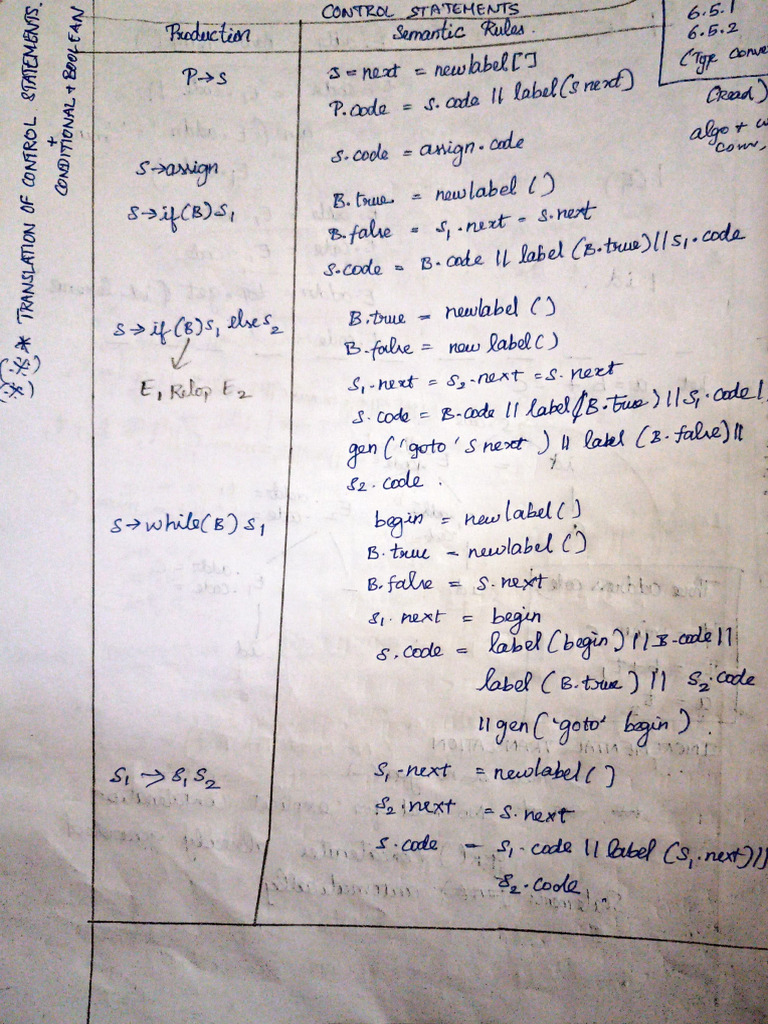 CONTROL STATEMENTS
Production
Semantic Rules.
P→S
S = next = newlabel[]
P.code = S.code || label(S next)
S→assign
S.code = assign.code
S→if(B)S1
B.true = newlabel()
B.false = S1.next = S.next
S.code = B.code || label(B.true)||S1.code
S→if(B)S1 else S2
E1 Relop E2
B.true = newlabel()
B.false = new label()
S1.next = S2.next = S.next
S.code = B.code || label(B.true)||S1.code|
gen('goto' S next) || label(B.false)||
S2.code.
S→while(B) S1
begin = newlabel()
B.true = newlabel()
B.false = S.next
S1.next = begin
S.code = label(begin)||B.code||
label(B.true)|| S2.code
||gen('goto' begin).
S1→S1S2
S1.next = newlabel()
S2.next = S.next
S.code = S1.code || label(S1.next)||
S2.code
** * TRANSLATION OF CONTROL STATEMENTS.
+
CONDITIONAL + BOOLEAN
6.5.1
6.5.2
(Type conve
(Read)
algo +
conv,